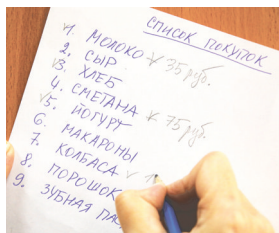 СПИСОК ПОКУПОК
√1. МОЛОКО √ 35 руб.
2. СЫР
√3. ХЛЕБ
4. СМЕТАНА √ 75 руб.
√5. ЙОГУРТ
6. МАКАРОНЫ
7. КОЛБАСА √ 1
8. ПОРОШОК
9. ЗУБНАЯ